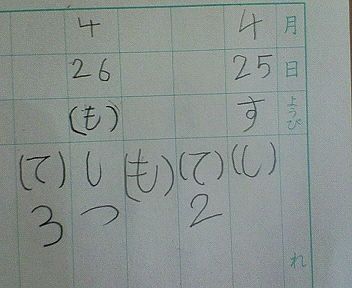 月日ようびれ
4 25 す (し)
(て) 2
(も)
4 26 (も) しつ
(て) 3